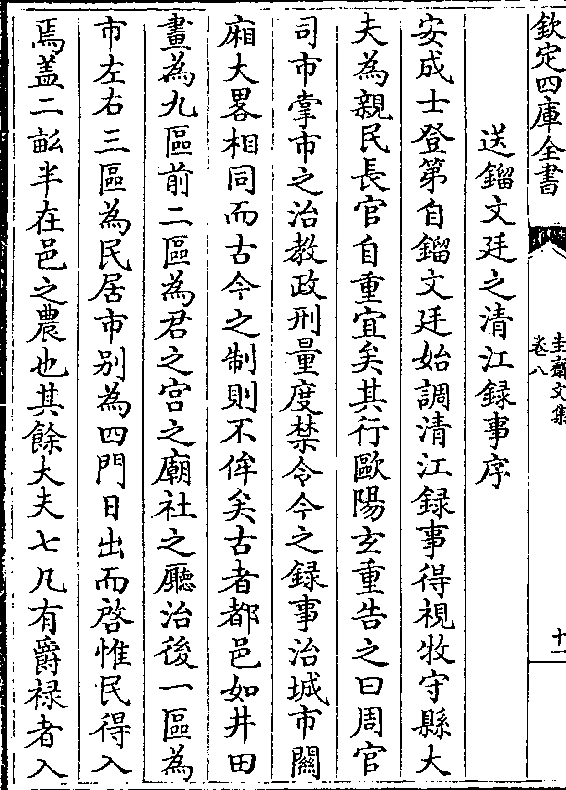 欽定四庫全書
圭齋文集
卷八
十一
送鎦文廷之清江録事序
安成士登第自鎦文廷始調清江録事得視牧守縣大
夫為親民長官自重宜矣其行歐陽玄重告之曰周官
司市掌市之治教政刑量度禁令今之録事治城市闗
廂大畧相同而古今之制則不侔矣古者都邑如井田
畫為九區前二區為君之宫之廟社之廳治後一區為
市左右三區為民居市别為四門日出而啓惟民得入
焉蓋二畝半在邑之農也其餘大夫七凡有爵禄者入